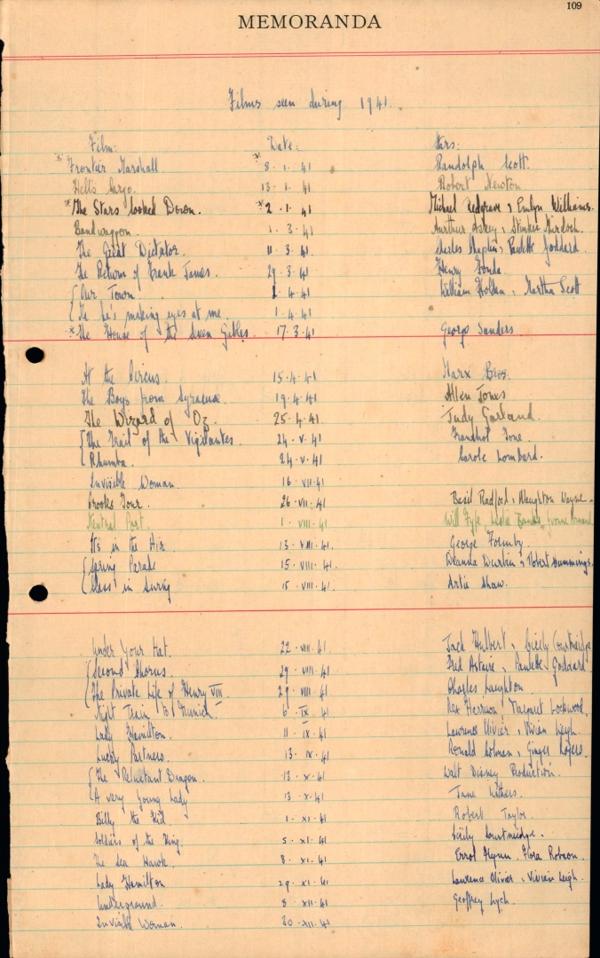 109
MEMORANDA
Films seen during 1941.
Film: Date: Stars:
* Frontier Marshall * 8. 1. 41 Randolph Scott.
Hell's Cargo. 13. 1. 41 Robert Newton
* The Stars looked Down. * 2. 1. 41 Michael Redgrave, Emlyn Williams.
Bandwaggon. 1. 3. 41 Arthur Askey, Stinker Murdoch.
The Great Dictator. 11. 3. 41 Charles Chaplin, Paulette Goddard.
The Return of Frank James. 29. 3. 41 Henry Fonda.
{ Our Town. 1. 4. 41 William Holden, Martha Scott
{ he's making eyes at me. 1. 4. 41
* The House of the Seven Gables. 17. 3. 41 George Sanders
At the Circus. 15. 4. 41 Marx Bros.
The Boys from Syracuse. 19. 4. 41 Allen Jones
The Wizard of Oz. 25. 4. 41 Judy Garland.
{ The Trail of the Vigilantes. 24. V. 41 Franchot Tone.
{ Rhumba. 24. V. 41 Carole Lombard.
Invisible Woman. 16. VII. 41
Crooks Tour. 26. VII. 41 Basil Radford, Naughton Wayne.
Neutral Port. 1. VIII. 41 Will Fyfe, Leslie Banks,
It's in the Air. 13. VIII. 41 George Formby.
{ Spring Parade 15. VIII. 41. Deanna Durbin, Robert Cummings.
{ Class in Swing 15. VIII. 41 Artie Shaw.
Under Your Hat. 22. VIII. 41 Jack Hulbert, Cicely Courtneidge
{ Second Chorus. 29. VIII. 41 Fred Astaire, Paulette Goddard
{ The Private Life of Henry VIII 29. VIII. 41 Charles Laughton
Night Train to Munich. 6. IX. 41 Rex Harrison, Margaret Lockwood.
Lady Hamilton. 11. IX. 41 Laurence Olivier, Vivian Leigh.
Lucky Partners. 13. IX. 41 Ronald Colman, Ginger Rogers.
{ The Reluctant Dragon. 13. X. 41 Walt Disney Production.
{ A very young Lady 13. X. 41 Jane Withers.
Billy the Kid. 1. XI. 41 Robert Taylor
Soldiers of the King. 5. XI. 41 Cicely Courtneidge.
The Sea Hawk. 8. XI. 41 Errol Flynn. Flora Robson.
Lady Hamilton 29. XI. 41 Laurence Olivier, Vivian Leigh.
Underground. 8. XII. 41 Geoffrey Lych.
Invisible Woman. 20. XII. 41